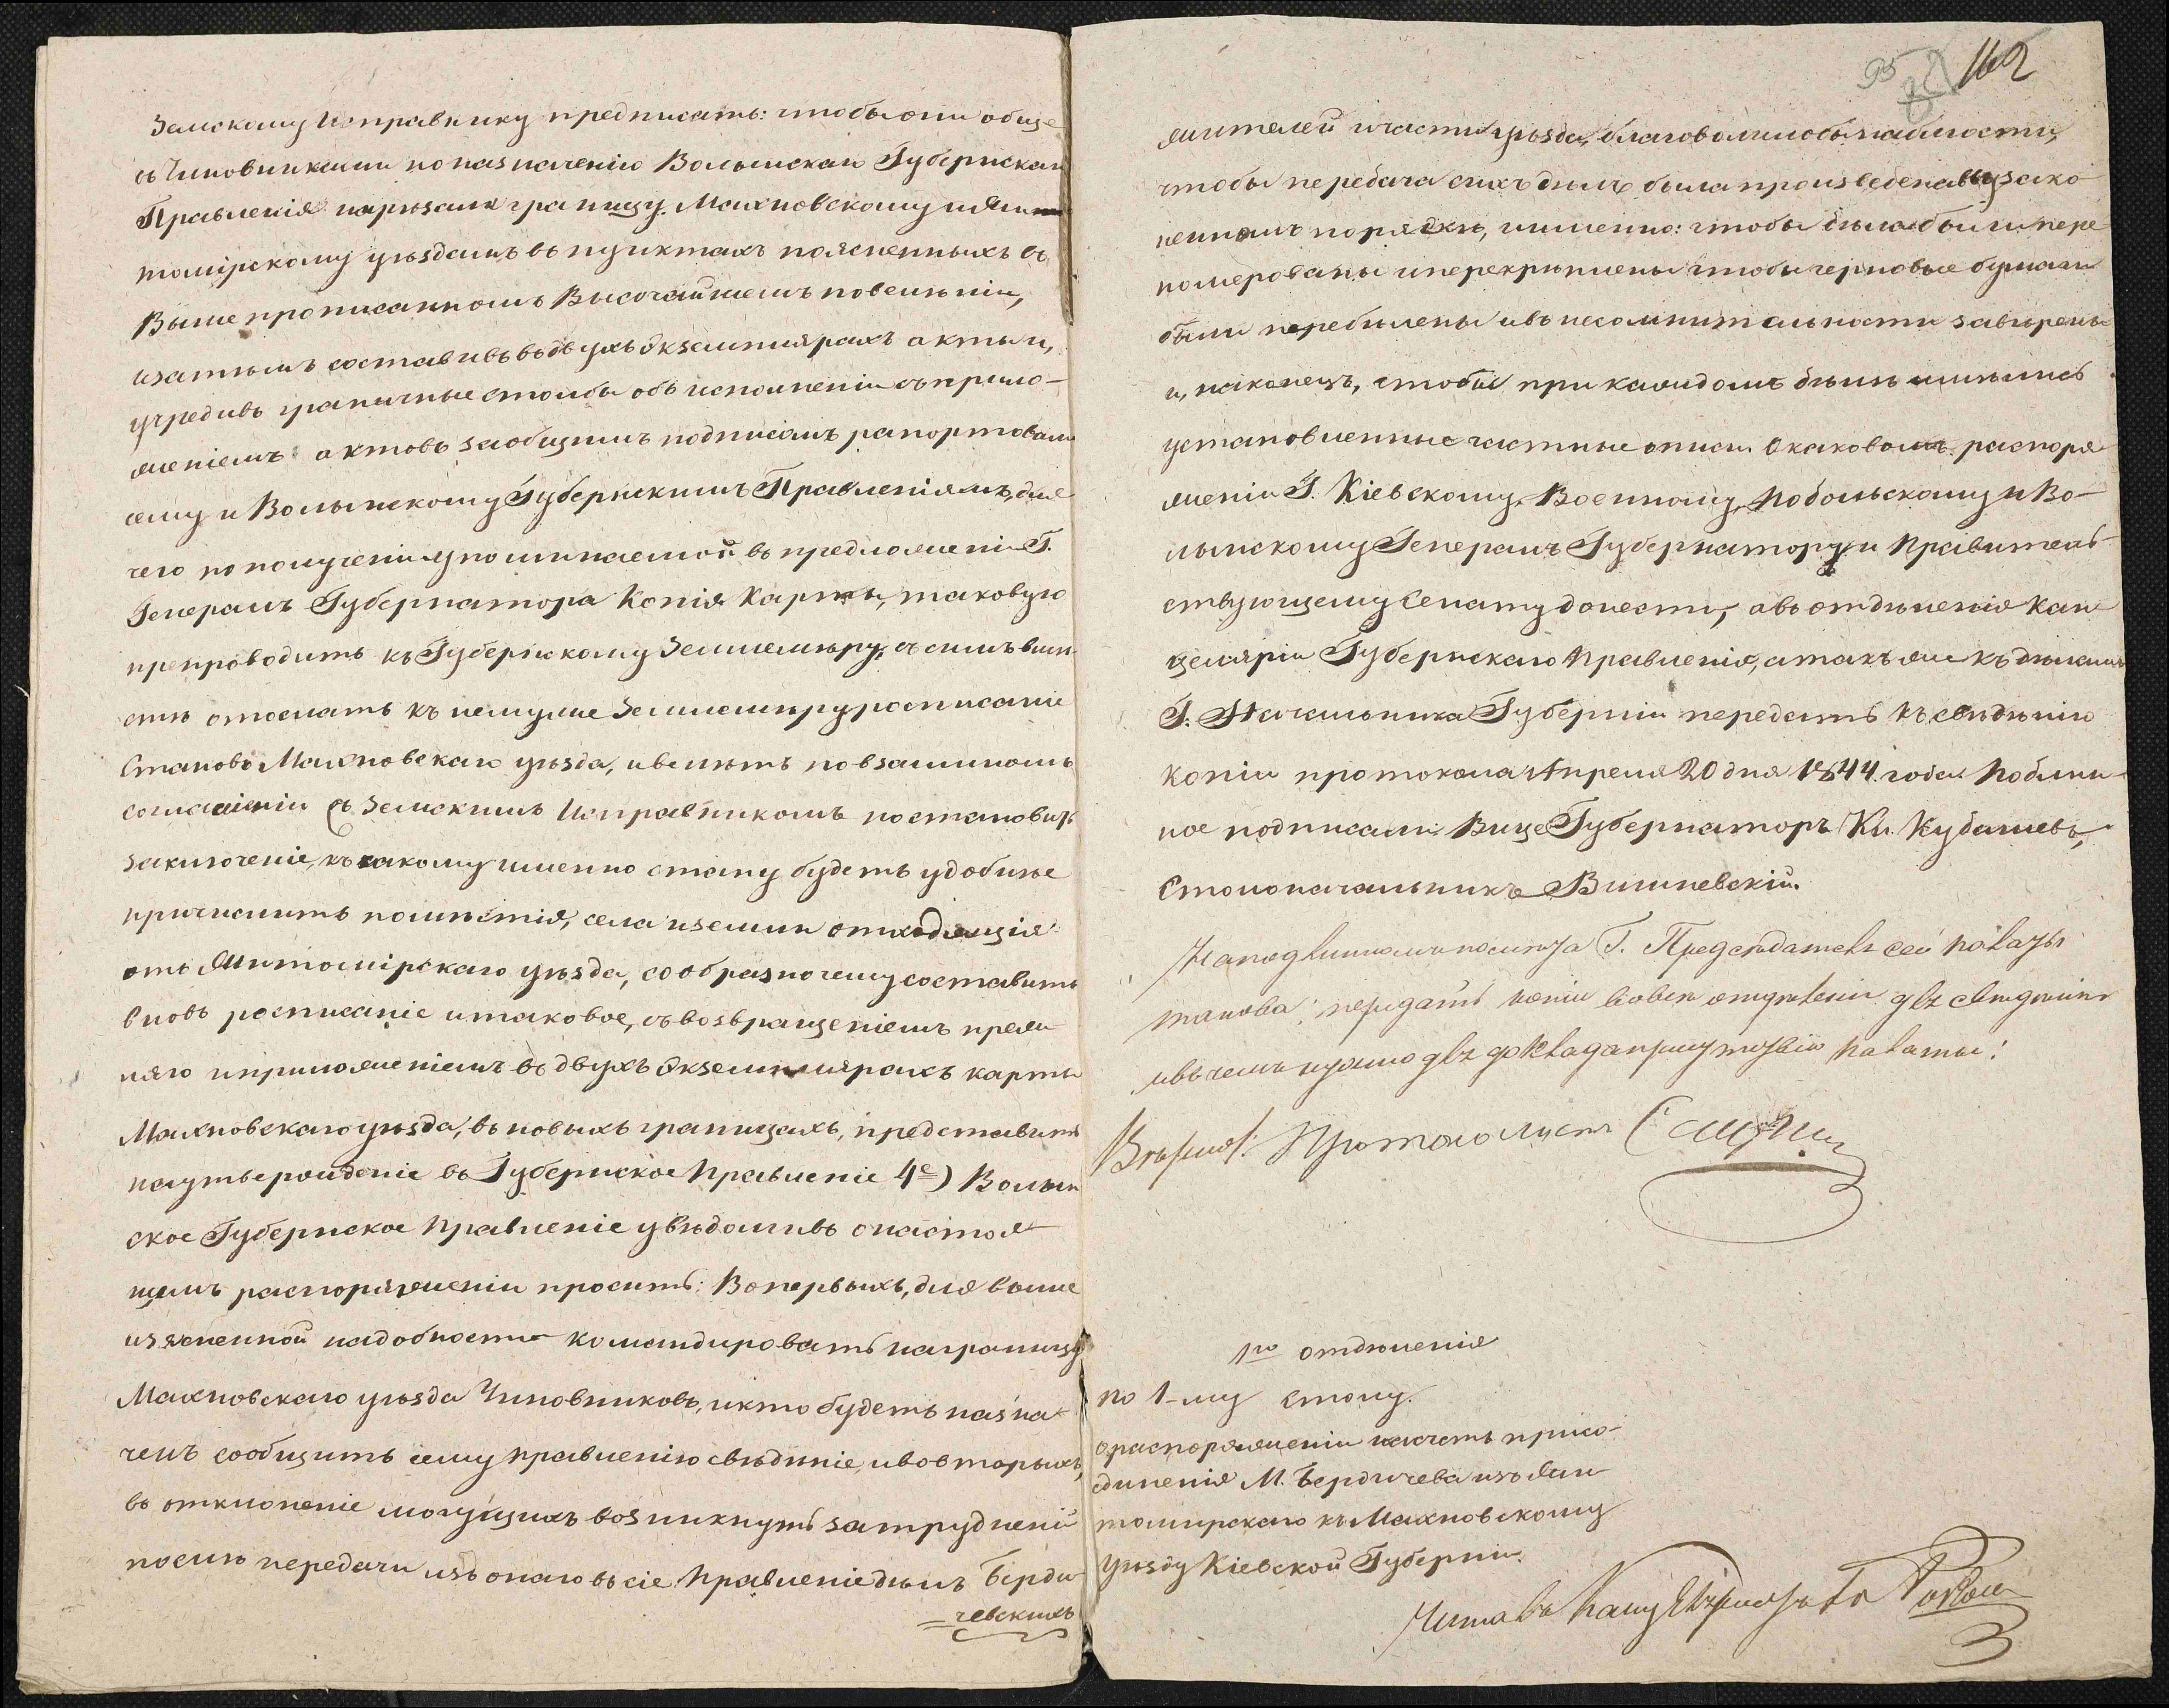 Земскому Исправнику предписать: чтобы они обще
съ Чиновниками по назначенію Волынскаго Губернскаго
Правленія нарѣзали границу Махновскому и Жи
томірскому уѣздамъ въ пунктахъ поясненныхъ въ
Выше прописанномъ Высочайшемъ повелѣніи,
и затѣмъ составивъ въ двухъ экземплярахъ акты и,
учредивъ граничные столбы объ исполненіи съ прило-
женіемъ актовъ за общимъ подписомъ рапортовали
сему и Волынскому Губернскимъ Правленіямъ, для
чего по полученіи упоминаемой въ предложеніи Г.
Генералъ Губернатора Копія Карты, таковую
препроводить къ Губернскому Землемѣру, съ симъ вмѣ-
стѣ отослать къ нему же Землемѣру росписаніе
Становъ Махновскаго уѣзда, и велѣть по взаимномъ
соглашеніи съ Земскимъ Исправникомъ постановить
заключеніе, къ какому именно стану будетъ удобнѣе
причислить помѣстія, села и земли отходящія
отъ Житомірскаго уѣзда, сообразно чему составить
вновь росписаніе и таковое, съ возвращеніемъ преж
няго и приложеніемъ въ двухъ экземплярахъ карты
Махновскаго уѣзда, въ новыхъ границахъ, представить
на утвержденіе въ Губернское Правленіе 4е) Волын
ское Губернское Правленіе увѣдомивъ о настоя
щемъ распоряженіи просить: Вопервыхъ, для выше
изъясненной надобности командировать на границу
Махновскаго уѣзда Чиновниковъ, и кто будетъ назна
ченъ сообщить сему Правленію свѣдѣніе, и вовторыхъ,
въ отклоненіе могущихъ возникнуть затрудненій
послѣ передачи изъ онаго въ сіе Правленіе дѣлъ Берди
чевскихъ
95
162
жителей и части уѣзда, благоволило бы наблюсти,
чтобы передача сихъ дѣлъ была произведена въ узако
ненномъ порядкѣ, и именно: чтобы дѣла были пере
номерованы и перекрѣплены чтобы черновые бумаги
были перебѣлены и въ несомнительности завѣрены
и, наконецъ, чтобы при каждомъ дѣлѣ имѣлись
установленные частные описи. О каковомъ распоря
женіи Г. Кіевскому Военному, Подольскому и Во-
лынскому Генералъ Губернатору и Правитель
ствующему Сенату донести, а въ отдѣленія Кан
целяріи Губернскаго Правленія, а также къ дѣламъ
Г. Начальника Губерніи передать къ свѣдѣнію
копіи протокола Апреля 20 дня 1844 года Подлин-
ное подписали Вице Губернаторъ Кн. Кудашевъ,
Столоначальникъ Вишневскій.
На подлинномъ Г. Предсѣдатель сей палаты
передать копіи во всѣ отдѣленія для свѣдѣнія
и въ чемъ нужно для доклада присутствію палаты:
Вѣрно: Протоколистъ
1го отдѣленія
по 1-му столу.
о распоряженіи на счетъ присо-
единенія М. Бердичева изъ Жи
томирскаго къ Махновскому
уѣзду Кіевской Губерніи.
Читалъ Канц